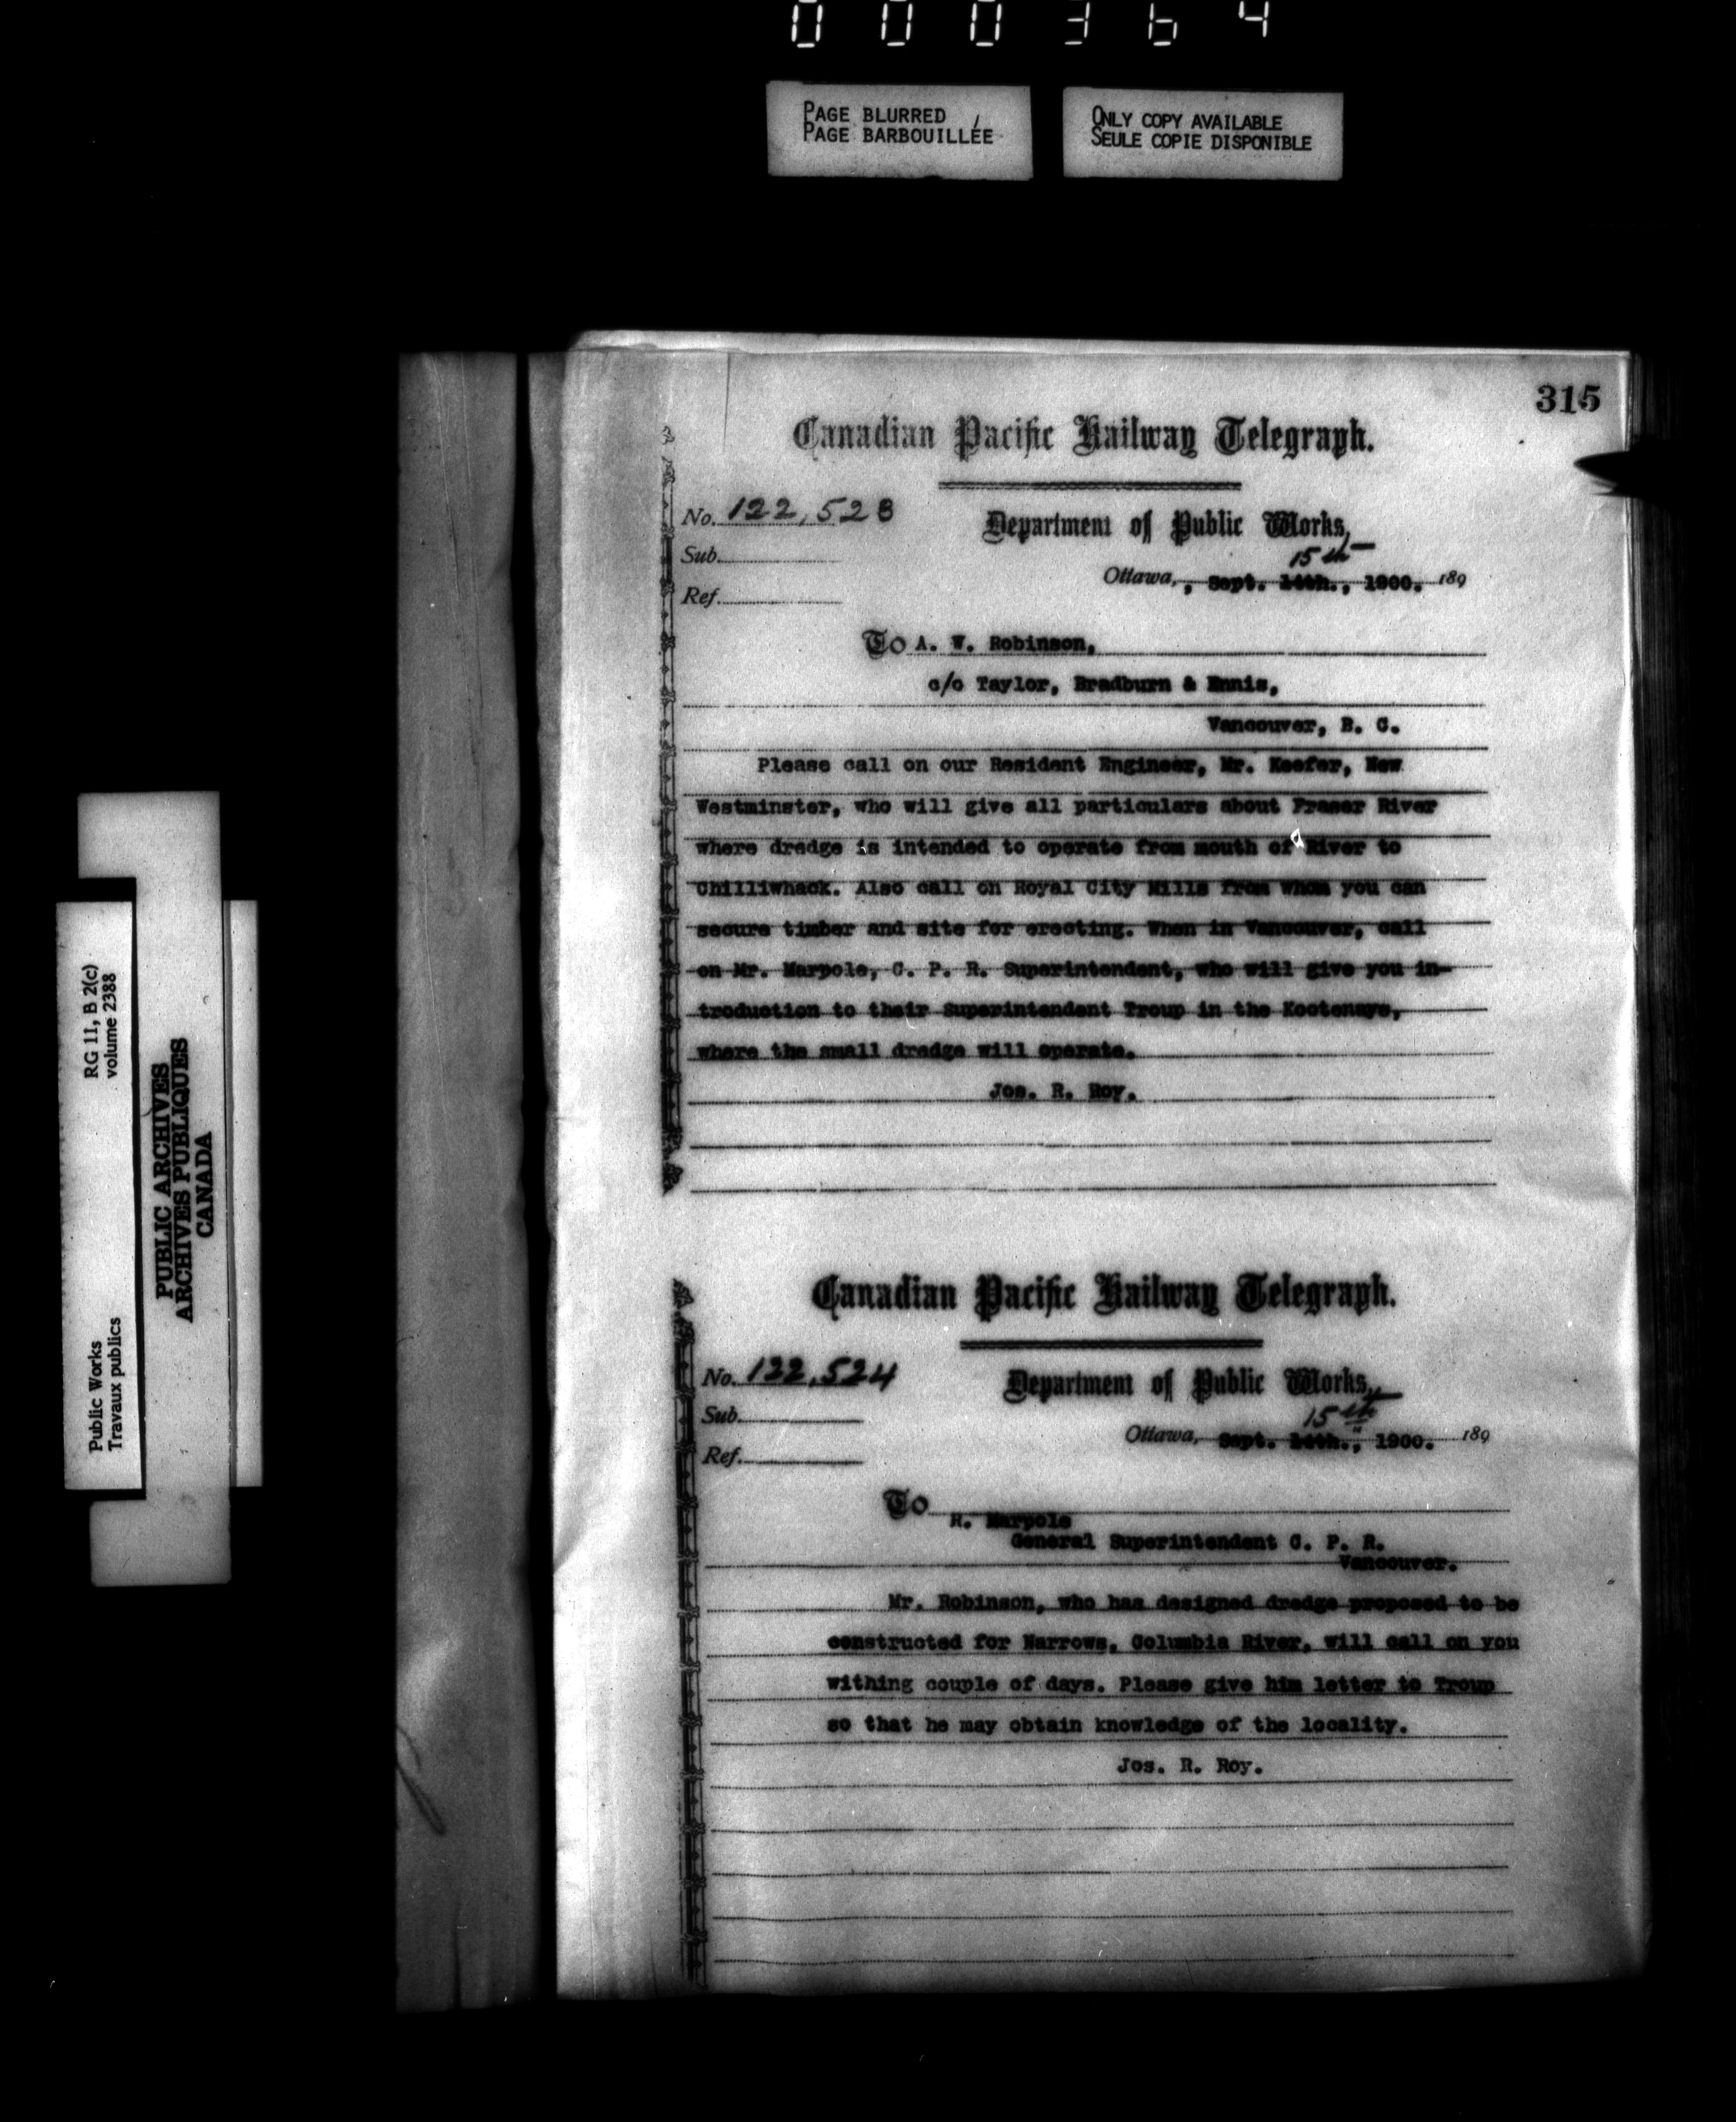 000364
PAGE BLURRED
PAGE BARBOUILLÉE
ONLY COPY AVAILABLE
SEULE COPIE DISPONIBLE
315
Canadian Pacific Railway Telegraph.
No. 122,523
Department of Public Works,
Sub.
15th
Ottawa, , Sept. 14th., 1900. 189
Ref.
To A. W. Robinson,
c/o Taylor, Bradburn & Ennis,
Vancouver, B. C.
Please call on our Resident Engineer, Mr. Keefer, New
Westminster, who will give all particulars about Fraser River
where dredge is intended to operate from mouth of River to
Chilliwhack. Also call on Royal City Mills from whom you can
secure timber and site for erecting. When in Vancouver, call
on Mr. Marpole, C. P. R. Superintendent, who will give you in-
troduction to their Superintendent Troup in the Kootenays,
where the small dredge will operate.
Jos. R. Roy.
Canadian Pacific Railway Telegraph.
No. 122,524
Department of Public Works,
Sub.
15th
Ottawa, Sept. 14th., 1900. 189
Ref.
To
R. Marpole
General Superintendent C. P. R.
Vancouver.
Mr. Robinson, who has designed dredge proposed to be
constructed for Narrows, Columbia River, will call on you
withing couple of days. Please give him letter to Troup
so that he may obtain knowledge of the locality.
Jos. R. Roy.
RG 11, B 2(c)
volume 2388
Public Works
Travaux publics
PUBLIC ARCHIVES
ARCHIVES PUBLIQUES
CANADA